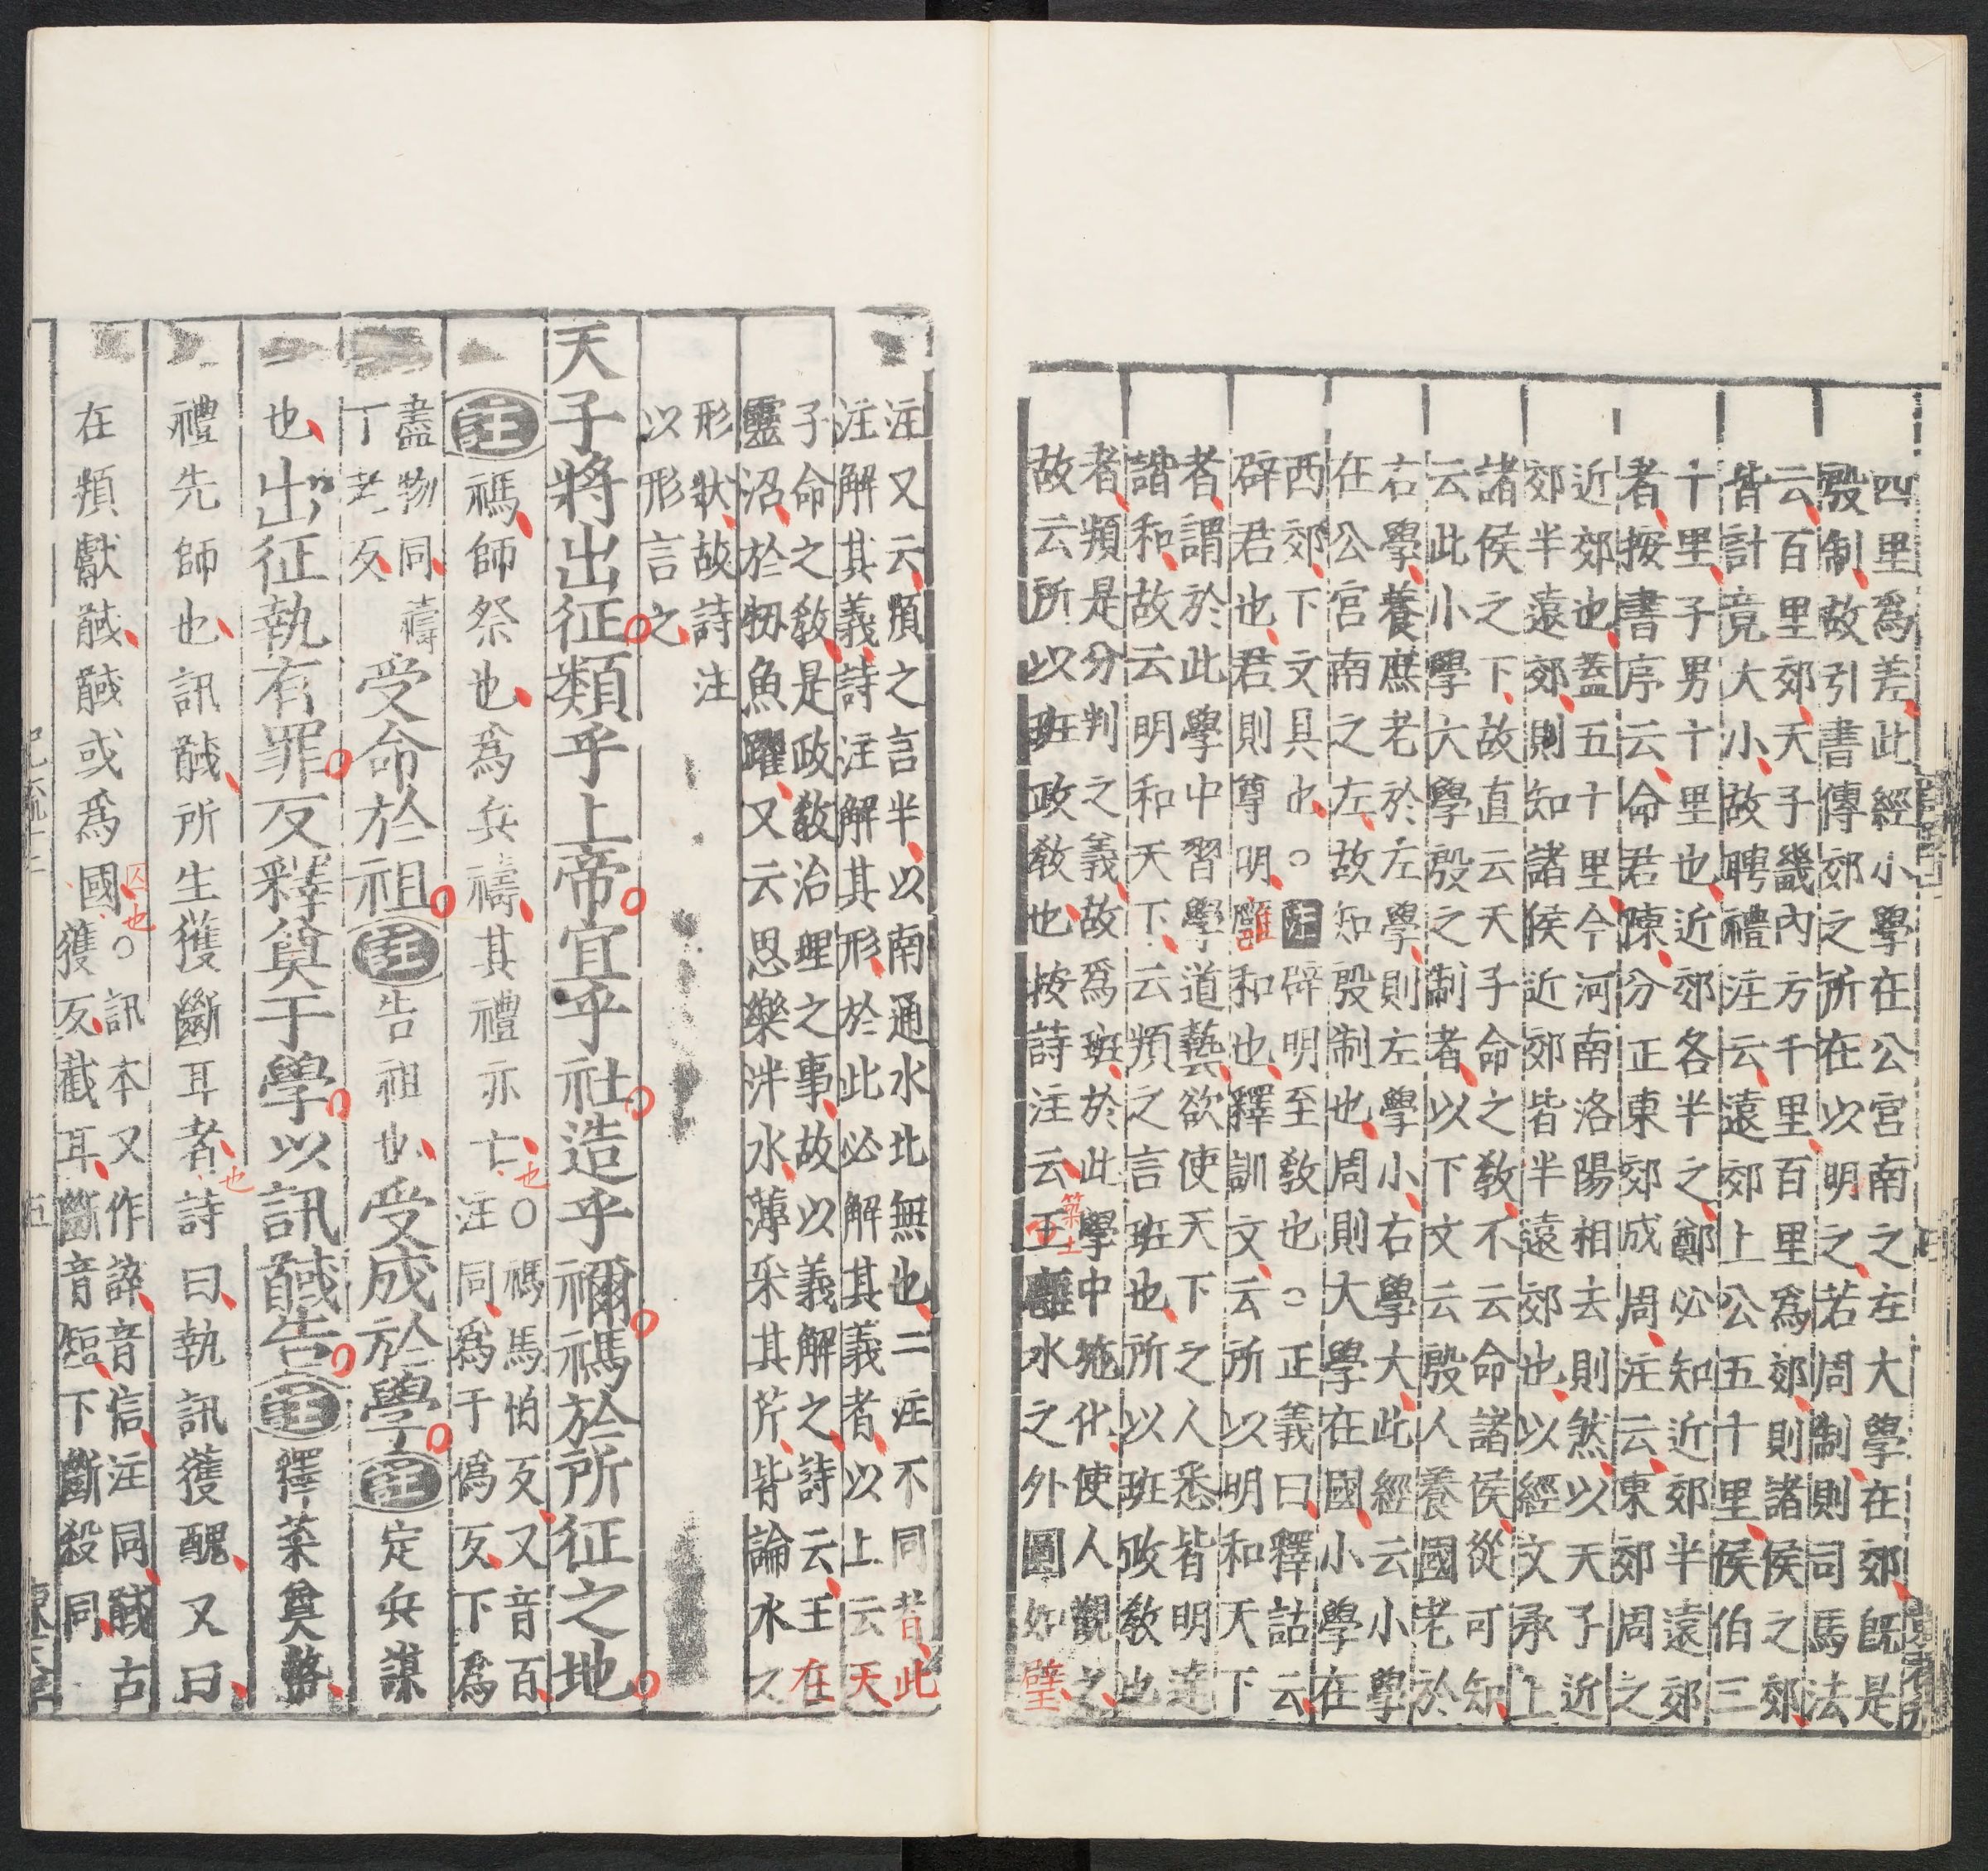 四里爲差此經小學在公宮南之左大學在郊旣是
殷制故引書傳郊之所在以明之若周制則司馬法
云百里郊天子畿內方千里百里爲郊則諸侯之郊
皆計竟大小故聘禮注云遠郊上公五十里侯伯三
十里子男十里也近郊各半之鄭必知近郊半遠郊
者按書序云命君陳分正東郊成周注云東郊周之
近郊也蓋五十里今河南洛陽相去則然以天子近
郊半遠郊則知諸侯近郊皆半遠郊也以經文承上
諸侯之下故直云天子命之敎不云命諸侯從可知
云此小學大學殷之制者以下文云殷人養國老於
右學養庶老於左學則左學小右學大此經云小學
在公宮南之左故知殷制也周則大學在國小學在
西郊下文具也○注辟明至敎也○正義曰釋詁云
辟君也君則尊明雝和也釋訓文云所以明和天下
者謂於此學中習學道藝欲使天下之人悉皆明達
諧和故云明和天下云頖之言班也所以班政敎也
者頖是分判之義故爲班於此學中施化使人觀之
故云所以班政敎也按詩注云築土壅水之外圓如璧
注又云頖之言半以南通水北無也二注不同者此
注解其義詩注解其形於此必解其義者以上云天
子命之敎是政敎治理之事故以義解之詩云王在
靈沼於牣魚躍又云思樂泮水薄采其芹皆論水之
形狀故詩注
以形言之
天子將出征類乎上帝宜乎社造乎禰禡於所征之地
註禡師祭也爲兵禱其禮亦亡也○禡馬怕反又音百
注同爲于僞反下爲
盡物同禱
丁老反受命於祖註告祖也受成於學註定兵謀
也出征執有罪反釋奠于學以訊馘告註釋菜奠幣
禮先師也訊馘所生獲斷耳者也詩曰執訊獲醜又曰
在頖獻馘馘或爲國囚也○訊本又作誶音信注同馘古
獲反截耳斷音短下斷殺同